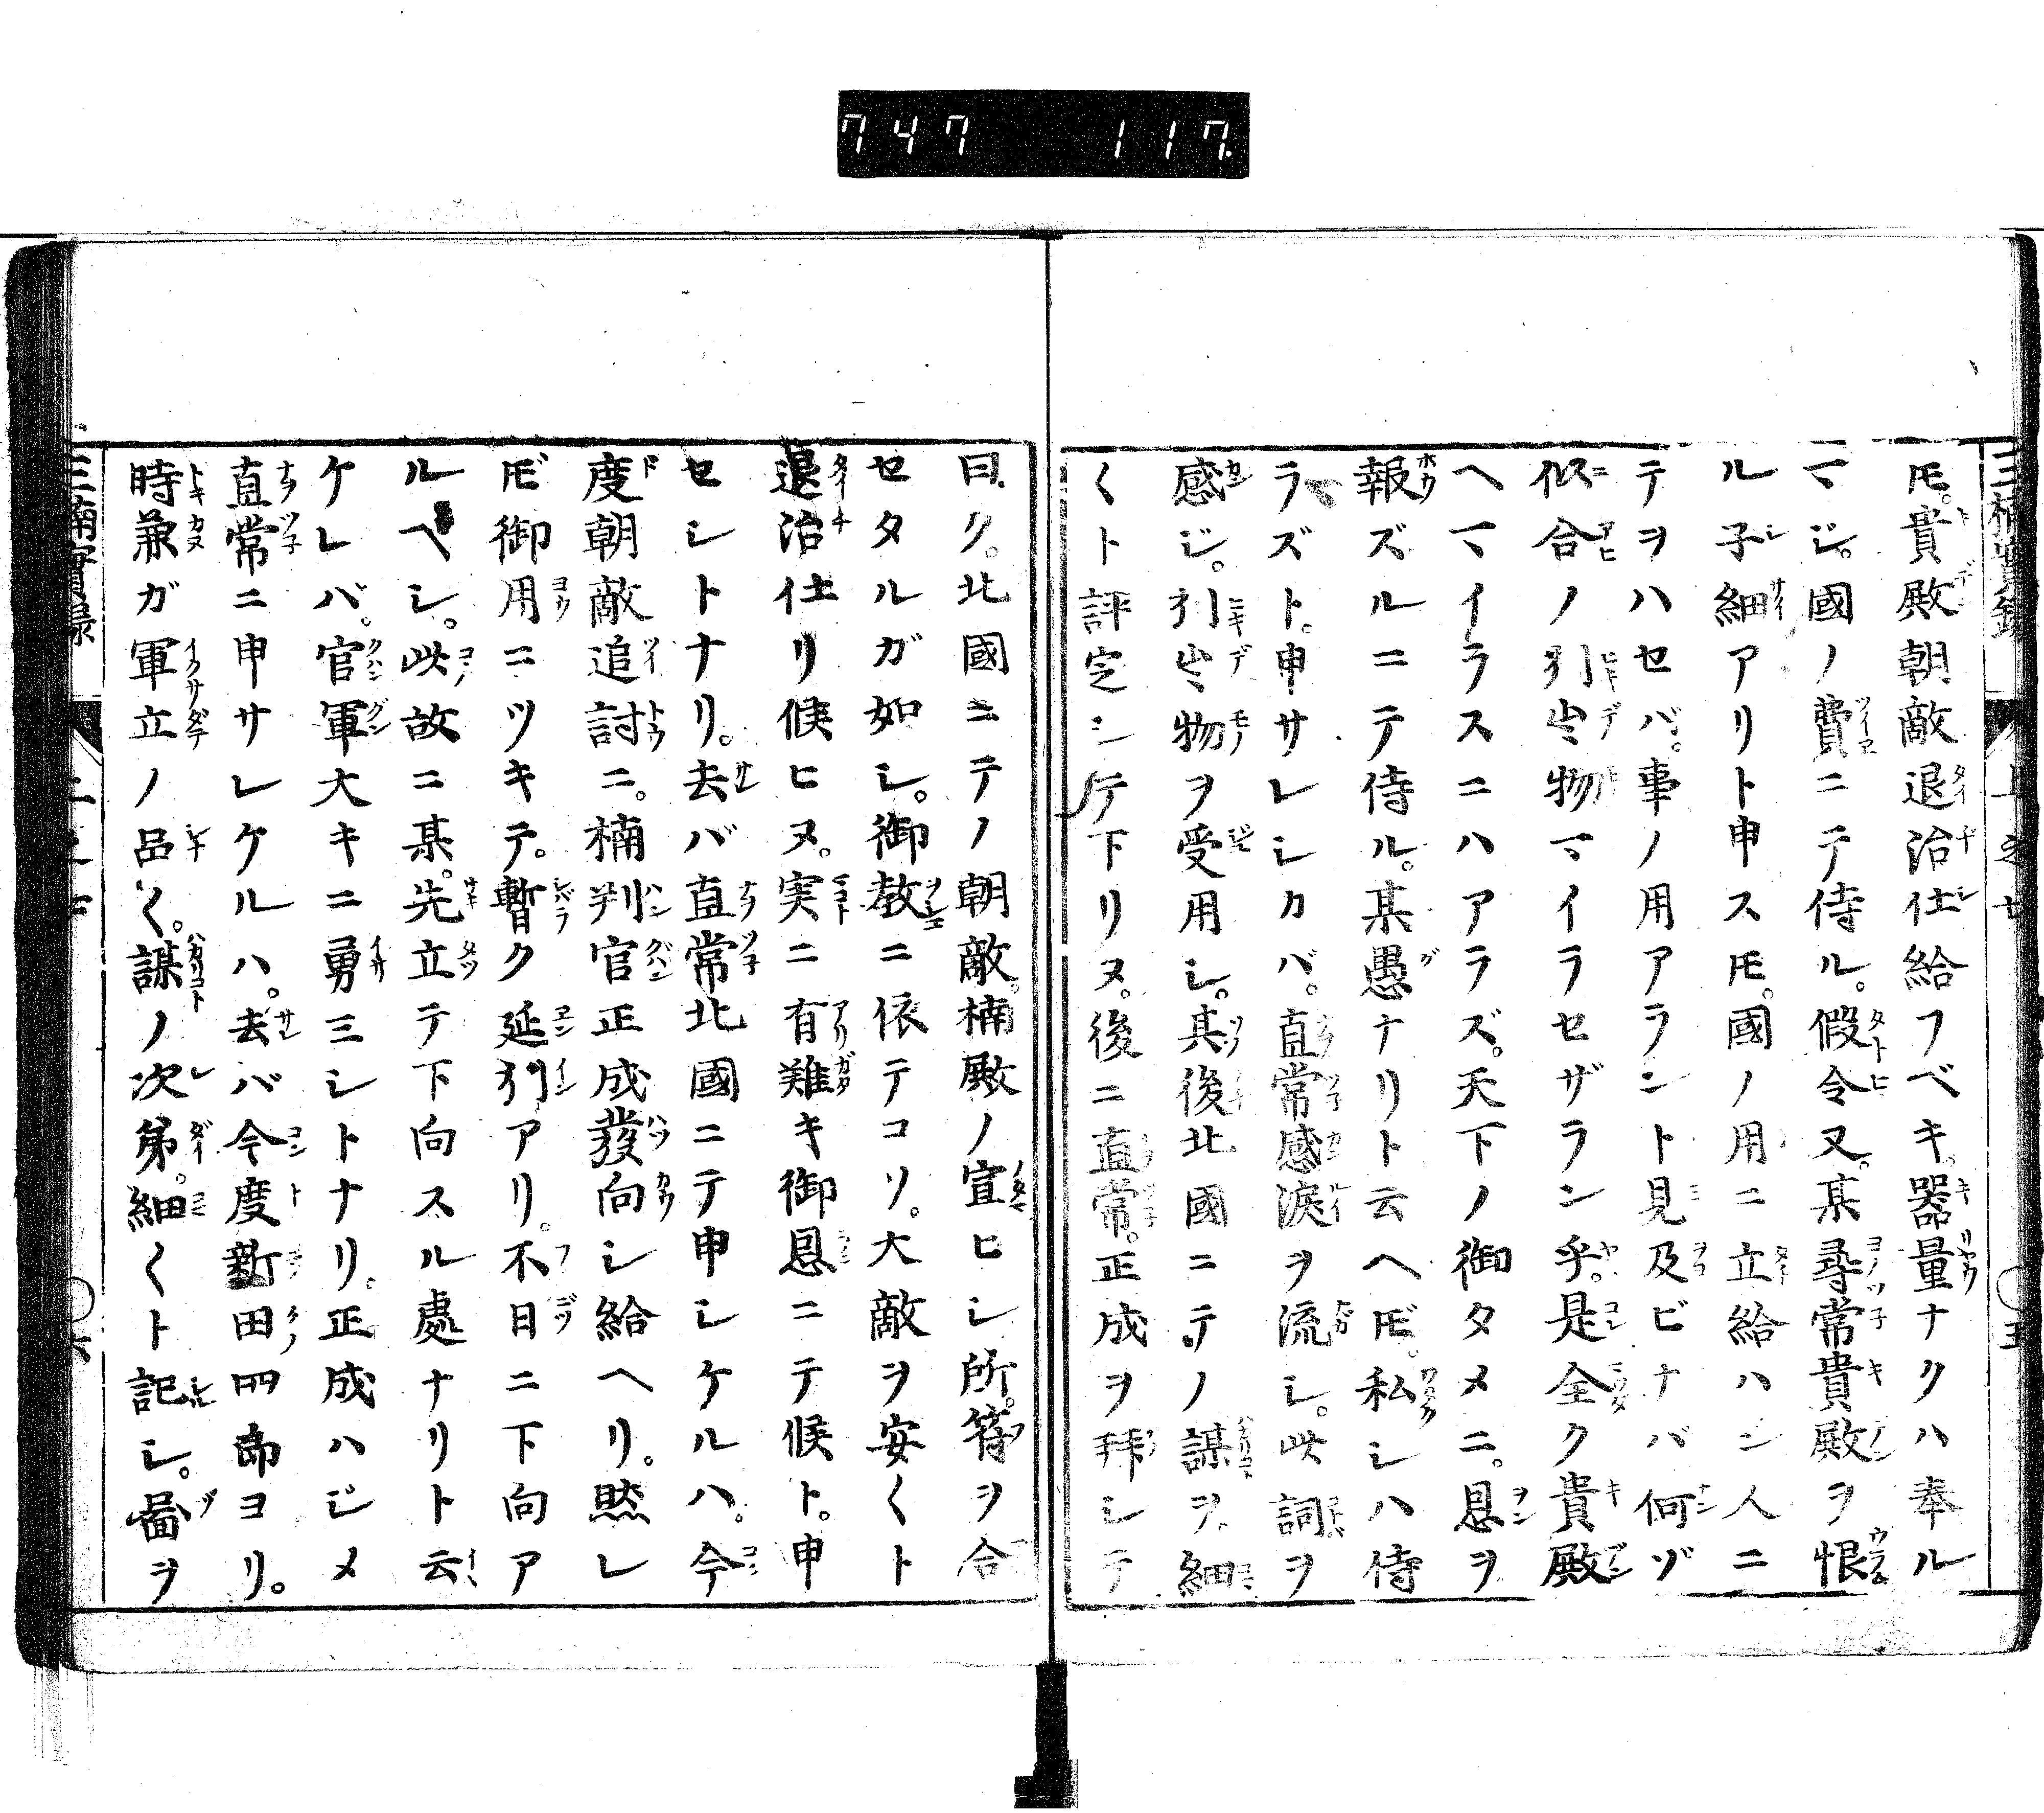 747 117
三楠實録 上之七 五
𪜈。貴殿朝敵退治仕給フベキ。器量ナクハ奉ル
マジ。國ノ費ニテ侍ル。假令又。某尋常貴殿ヲ恨
ル子細アリト申ス𪜈。國ノ用ニ立給ハン人ニ
テヲハセバ。事ノ用アラント見及ビナバ何ゾ
似合ノ引出物マイラセザラン乎。是全ク貴殿
ヘマイラスニハアラズ。天下ノ御タメニ。恩ヲ
報ズルニテ侍ル。某愚ナリト云ヘ𪜈。私シハ侍
ラズト。申サレシカバ。直常感淚ヲ流シ。此詞ヲ
感ジ。引出物ヲ受用シ。其後北國ニテノ謀ヲ。細
〱ト評定シテ下リヌ。後ニ直常。正成ヲ拜シテ
曰ク。北國ニテノ朝敵。楠殿ノ宣ヒシ所。符ヲ合
セタルガ如シ。御教ニ依テコソ。大敵ヲ安〱ト
退治仕リ候ヒヌ。実ニ有難キ御恩ニテ候ト。申
セシトナリ。去バ直常北國ニテ申シケルハ。今
度朝敵追討ニ。楠判官正成發向シ給ヘリ。然レ
𪜈御用ニツキテ。暫ク延引アリ。不日ニ下向ア
ルヘシ。此故ニ某。先立テ下向スル處ナリト云
ケレバ。官軍大キニ勇ミシトナリ。正成ハジメ
直常ニ申サレケルハ。去バ今度新田四郎ヨリ。
時兼ガ軍立ノ品〱。謀ノ次第。細〱ト記シ。啚ヲ
三楠實録 上之七 六